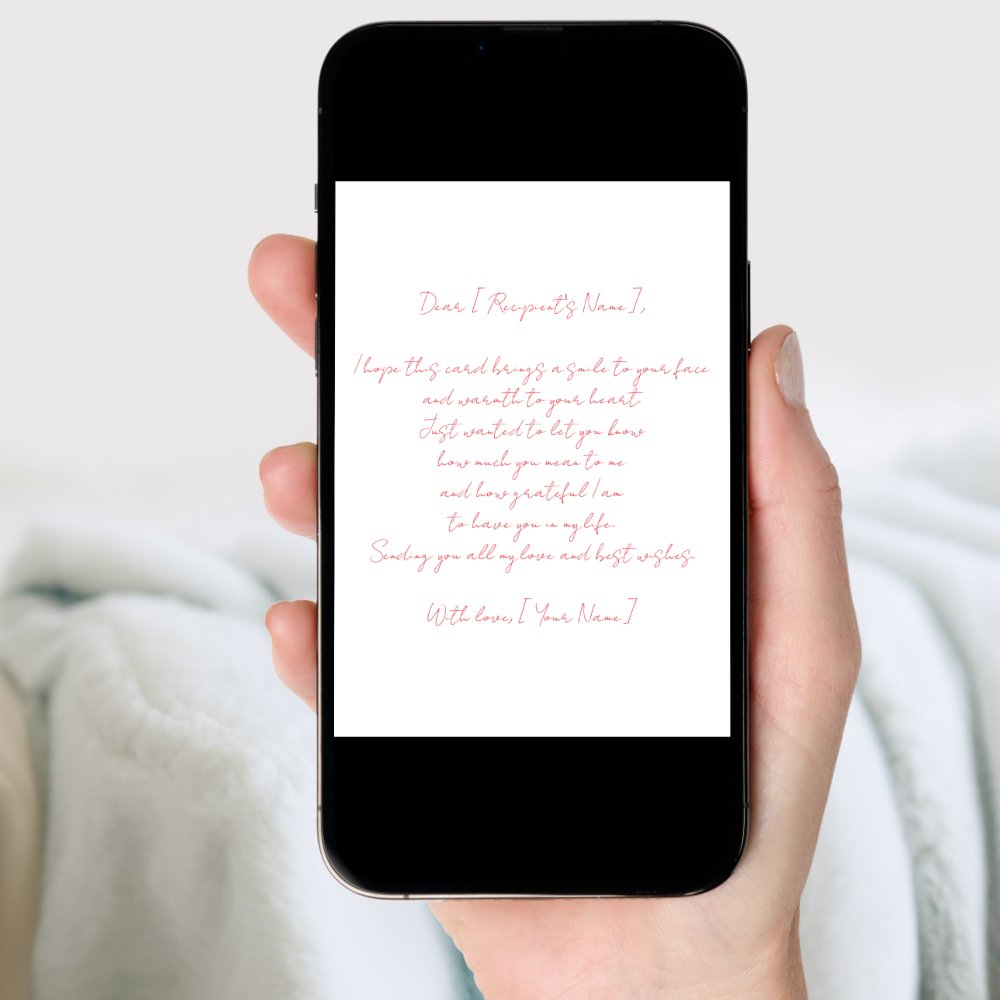 Dear [Recipient's Name],
I hope this card brings a smile to your face
and warmth to your heart.
Just wanted to let you know
how much you mean to me
and how grateful I am
to have you in my life.
Sending you all my love and best wishes.
With love, [Your Name]